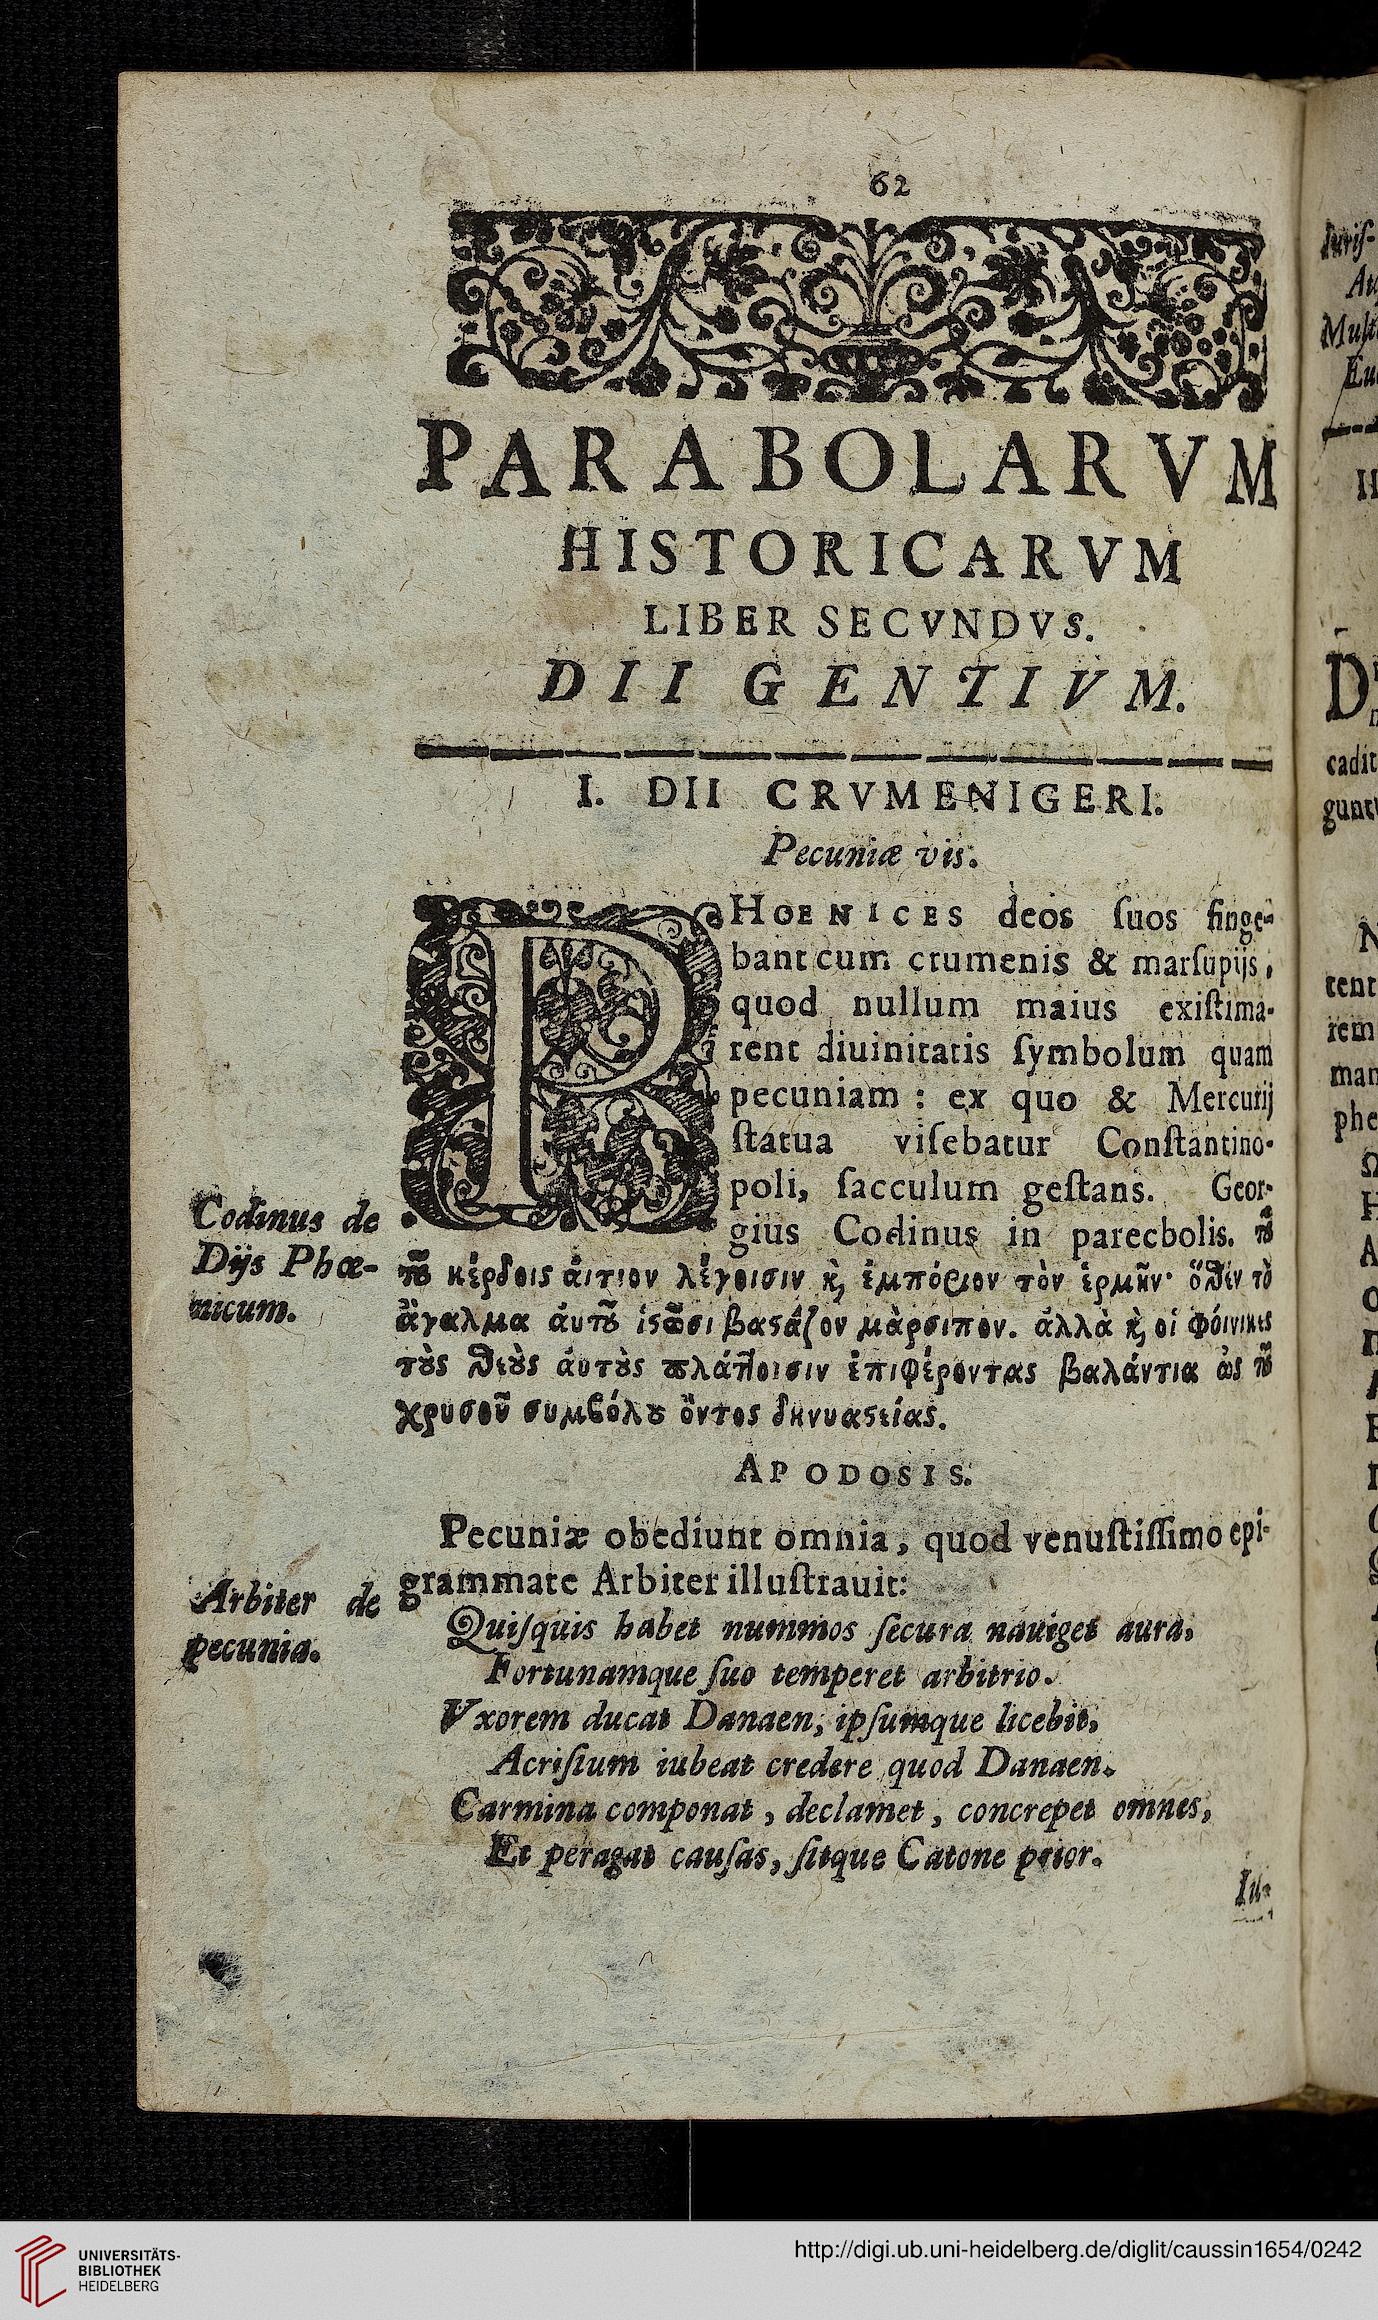 62
PARABOLARVM
HISTORICARVM
LIBER SECVNDVS.
DII GENTIVM.
I. DII CRVMENIGERI.
Pecuniæ vis.
PHOENICES deos ſuos finge-
bant cum crumenis & marſupijs,
quod nullum maius exiſtima-
rent diuinitatis ſymbolum quam
pecuniam : ex quo & Mercurij
ſtatua viſebatur Conſtantino-
poli, ſacculum geſtans. Geor-
gius Codinus in parecbolis. τȣ͂
Codinus de
Dijs Phœ-
nicum.
τȣ͂ κέρδοις ἄιτιον λέγοισιν κ̀, ἐμπόριον τὸν ἑρμῆν· ὅθεν τὸ
ἄγαλμα ἀυτȣ͂ ἱςῶσι βαςάζον μὰρσιπον. ἀλλὰ κ̀, οἱ φόινικες
τȣ̀ς θεȣ̀ς ἀυτȣ̀ς πλάττοισιν ἐπιφέροντας βαλάντια ὡς τȣ͂
χρυσοῦ συμβόλȣ ὄντος δηνυαςείας.
APODOSIS.
Pecuniæ obediunt omnia, quod venuſtiſſimo epi-
grammate Arbiter illuſtrauit:
Arbiter de
pecunia.
Quiſquis habet nummos ſecura nauiget aura,
Fortunamque ſuo temperet arbitrio.
Vxorem ducat Danaen, ipſumque licebit,
Acriſium iubeat credere quod Danaen.
Carmina componat, declamet, concrepet omnes,
Et peragat cauſas, ſitque Catone prior.
Iu-
Iuriſ-
cadit
tent
rem
man
phe
UNIVERSITÄTS-
BIBLIOTHEK
HEIDELBERG
http://digi.ub.uni-heidelberg.de/diglit/caussin1654/0242